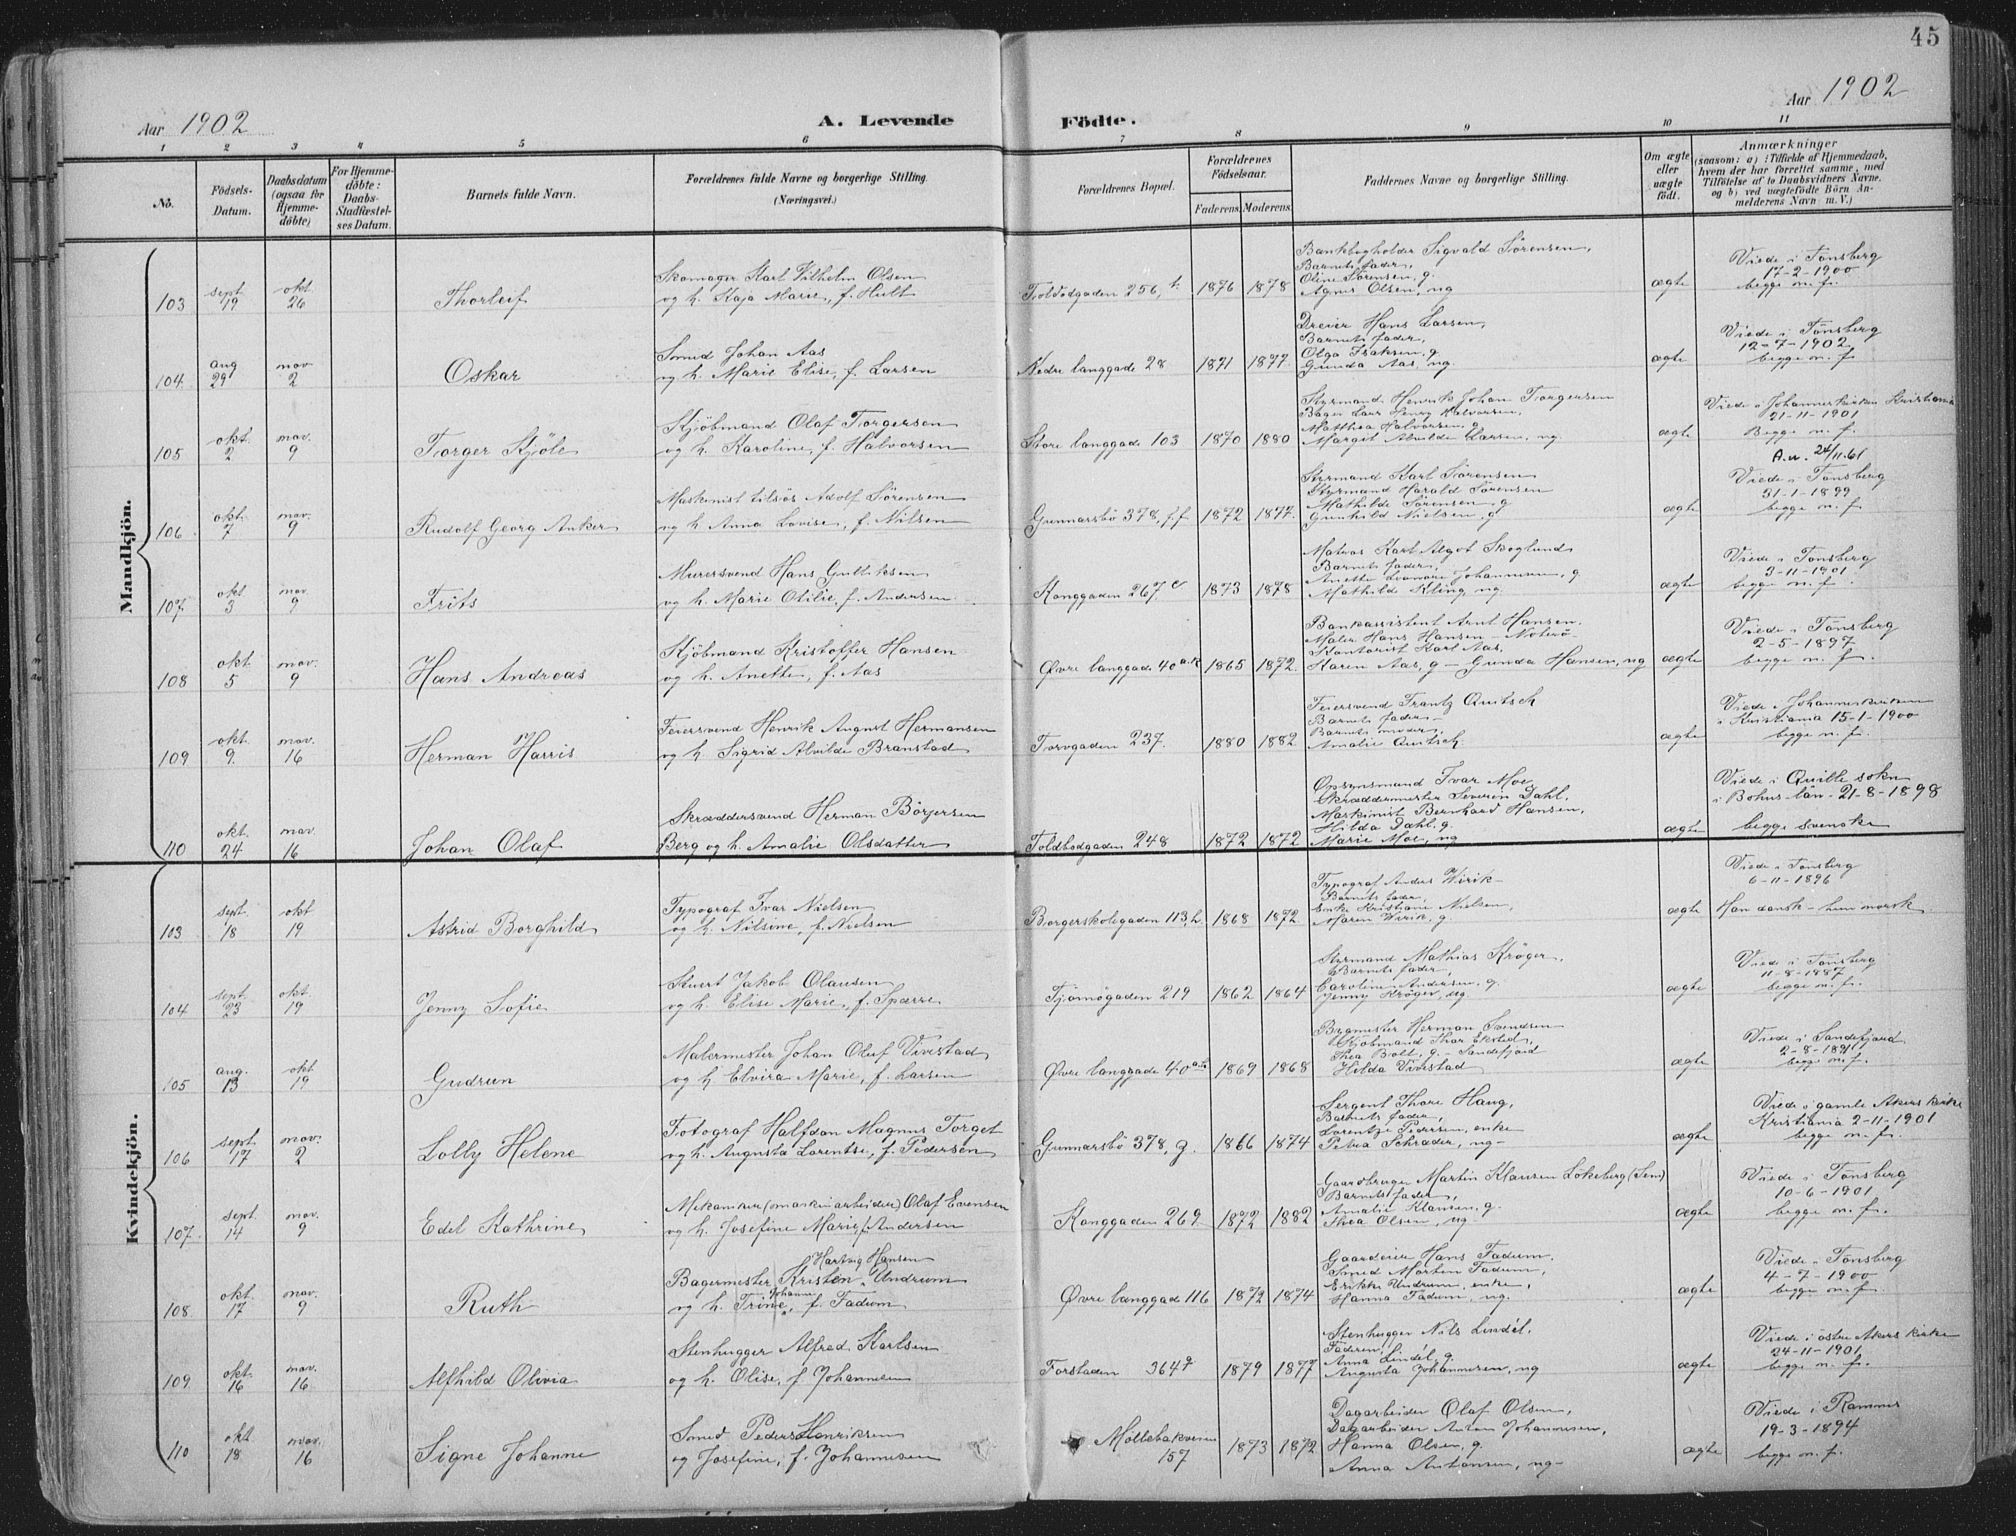 45
Aar 1902
A. Levende
Födte.
Aar 1902
1 2 3 4 5 6 7 8 9 10 11
No.
Födsels-
Datum.
Daabsdatum
(ogsaa for
Hjemme-
döbte)
For Hjemme-
döbte:
Daabs-
Stadfæstel-
ses Datum.
Barnets fulde Navn.
Forældrenes fulde Navne og borgerlige Stilling.
(Næringsvei.)
Forældrenes Bopæl.
Forældrenes
Födselsaar.
Faderens. Moderens.
Faddernes Navne og borgerlige Stilling.
Om ægte
eller
uægte
födt.
Anmærkninger
(saasom: a) i Tilfælde af Hjemmedaab,
hvem der har forrettet samme, med
Tilföielse af to Daabsvidners Navne,
og b) ved uægtefödte Börn An-
melderens Navn m. V.)
Mandkjön.
103 sept. 19 okt. 26 Thorleif
Skomager Karl Vilhelm Olsen
og h. Kaja Marie, f. Hult
Toldbodgaden 256, 1876 1878
Bankbygholder Sigvald Sörensen,
Barnets fader,
Oline Sörensen, g.
Agnes Olsen, ug
ægte
Viede i Tönsberg
17-2-1900
begge m. f.
104 aug 29 nov 2 Oskar
Smed Johan Aas
og h. Marie Elise, f. Larsen
Nedre langgade 28 1871 1877
Dreier Hans Larsen,
Barnets fader,
Olga Isaksen, g.
Gunda Aas, ug.
ægte
Viede i Tönsberg
12-7-1902
begge m. f.
105 okt. 2 nov. 9 Torger Kjöle
Kjöbmand Olaf Torgersen
og h. Karoline, f. Halvorsen
Store langgade 103 1870 1880
Styrmand Henrik Johan Torgersen
Bager Lars Henry Halvorsen,
Matthea Halvorsen, g
Margit Alvilde Larsen, ug.
ægte
Viede i Johanneskirken Kristiania
21-11-1901
Begge m. f.
A.u. 24/11.61
106 okt. 7 nov. 9 Rudolf Georg Anker
Maskinist tilsös Adolf Sörensen
og h. Anna Lovise, f. Nilsen
Gunnarsbö 378, f.f 1872 1877
Styrmand Karl Sörensen
Styrmand Harald Sörensen
Mathilde Sörensen, g
Gunhild Nielsen, g
ægte
Viede i Tönsberg
31-1-1899
begge m. f.
107 okt 3 nov. 9 Frits
Murersvend Hans Gulliksen
og h. Marie Otilie, f. Andersen
Konggaden 267 c 1873 1878
Matros Karl Algot Skoglund
Barnets fader,
Anette Leonore Johannesen, g
Mathilde Kling, ug.
ægte
Viede i Tönsberg
3-11-1901
begge m. f.
108 okt 5 nov. 9 Hans Andreas
Kjöbmand Kristoffer Hansen
og h. Anette, f. Aas
Øvre langgade 40 a.k 1865 1872
Bankassistent Arnt Hansen.
Maler Hans Hansen - Nøterö
Kontorist Karl Aas,
Karen Aas, g - Gunda Hansen, ug
ægte
Viede i Tönsberg
2-5-1897
begge m. f.
109 okt. 9. nov. 16 Herman Harris
Feiersvend Henrik August Hermansen
og h. Sigrid Alvilde Branstad
Torvgaden 237. 1880 1882
Feiersvend Frantz Quitsch
Barnets fader
Barnets moder
Amalie Quitsch.
ægte
Viede i Johanneskirken
i Kristiania 15-1-1900
begge m. f.
110 okt. 24 nov. 16 Johan Olaf
Skræddersvend Herman Börjersen
Berg og h. Amalie Olsdatter
Toldbodgaden 248 1872 1872
Opsynsmand Ivar Moe
Skræddermester Severin Dahl,
Maskinist Bernhard Hansen,
Hilda Dahl, g.
Marie Moe, ug
ægte
Viede i Quille sokn
i Bohus län 21-8-1898
begge svenske
Kvindekjön.
103 sept. 18 okt 19 Astrid Borghild
Typograf Ivar Nielsen
og h. Nilsine, f. Nielsen
Borgerskolegaden 113, h 1868 1872
Typograf Anders Wirik
Barnets fader,
Enke Kristiane Nielsen,
Maren Wirik, g.
ægte
Viede i Tönsberg
6-11-1896
Han dansk - hun norsk
104 sept. 23 okt. 19 Jenny Sofie
Stuert Jakob Olausen
og h. Elise Marie, f. Sparre
Tjömögaden 219 1862 1864
Styrmand Mathias Kröger,
Barnets fader,
Caroline Andersen, g.
Jenny Kröger, ug.
ægte
Viede i Tönsberg
11-8-1887
begge m. f.
105 aug. 13 okt 19 Gudrun
Malermester Johan Oluf Vivestad
og h Elvira Marie, f. Larsen
Øvre langgade 40 1869 1868
Bygmester Herman Svendsen
Kjöbmand Thor Eksted,
Thea Bolt, g. - Sandefjord
Hilda Vivestad
ægte
Viede i Sandefjord
2-8-1891
begge m. f.
106 sept. 17 nov. 2 Lolly Helene
Fotograf Halfdan Magnus Torget
og h. Augusta Lorentse, f. Pedersen
Gunnarsbö 378, g. 1866 1874
Sergent Thore Haug,
Barnets fader,
Lorentze Pedersen, enke
Petra Schrader, ug
ægte
Viede i gamle Akers kirke
Kristiania 2-11-1901
begge m. f.
107 sept. 14 nov. 9 Edel Kathrine
Mekaniker (maskinarbeider) Olaf Evensen
og h. Josefine Marie, f. Andersen
Konggaden 269 1872 1882
Gaardbruger Martin Klausen Lökeberg (Sem)
Barnets fader,
Amalie Klausen, g.
Thea Olsen, ug
ægte
Viede i Tönsberg
10-6-1901
begge m. f.
108 okt. 17 nov. 9 Ruth
Hartvig Hansen
Bagermester Kristen Undrum
og h. Trine Johanne, f. Fadum
Øvre langgad 116 1872 1874
Gaardeier Hans Fadum.
Smed Morten Fadum,
Erikke Undrum, enke,
Hanna Fadum, ug.
ægte
Viede i Tönsberg
4-7-1900
begge m. f.
109 okt. 16 nov. 16 Alfhild Olivia
Stenhugger Alfred Karlsen
og h. Olise, f. Johannesen
Forstaden 364 g 1879 1877
Stenhugger Nils Lindél,
Faderen,
Anna Lindél, g.
Augusta Johannesen, ug
ægte
Viede i östre Akers kirke
24-11-1901
begge m. f.
110 okt. 18 nov. 16 Signe Johanne
Smed Peder Henriksen
og Josefine, f. Johannesen
Möllebakveien 157 1873 1872
Dagarbeider Olaf Olsen,
Dagarbeider Anton Johannesen,
Hanna Olsen, g.
Anna Antonsen, ug
ægte
Viede i Rammer
19-3-1894
begge m. f.